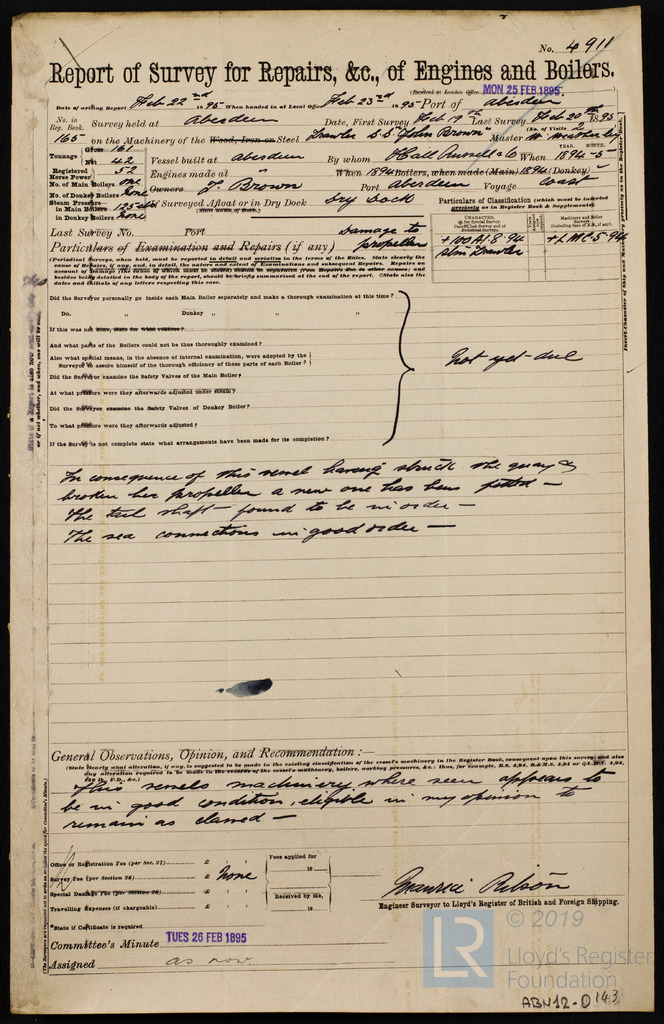 No. 4911
Report of Survey for Repairs, &c., of Engines and Boilers.
(Received at London Office MON 25 FEB 1895
Date of writing Report Feb 22nd 1895 When handed in at Local Office Feb 23rd 1895 Port of Aberdeen
No. in Reg. Book. Survey held at Aberdeen Date, First Survey Feb 19th Last Survey Feb 20th 1895
165 on the Machinery of the Wood, Iron or Steel Trawler S.S. "John Brown" (No. of Visits 2) Master
Tonnage Gross 161 Net 42 Vessel built at Aberdeen By whom Hall Russell & Co When 1894-5
YEAR. MONTH.
Registered Horse Power 52 Engines made at " When 1894 Boilers, when made (Main) 1894 (Donkey)
No. of Main Boilers one Owners J. Brown Port Aberdeen Voyage Coast
No. of Donkey Boilers None
Steam Pressure in Main Boilers 125 lbs If Surveyed Afloat or in Dry Dock Dry Dock
in Donkey Boilers None
Particulars of Classification (which must be inserted precisely as in Register Book & Supplements).
Last Survey No. Port
Particulars of Examination and Repairs (if any) Damage to propeller
CHARACTER.
Machinery and Boiler Surveys
+100A1-8.94
Stm Trawler
+LMC-5-94
Insert Character of Ship and Machinery precisely as in the Register Book.
(Periodical Surveys, when held, must be reported in detail and seriatim in the terms of the Rules. State clearly the
cause of Repairs, if any, and, in detail, the nature and extent of Examinations and subsequent Repairs. Repairs on
account of Damage (the cause of which must be stated) be separated from Repairs due to other causes; and
besides being detailed in the body of the report, should be briefly summarised at the end of the report. State also the
dates and initials of any letters respecting this case.
Did the Surveyor personally go inside each Main Boiler separately and make a thorough examination at this time?
Do. " Donkey " " "
If this was not done, state for what reasons?
And what parts of the Boilers could not be thoroughly examined?
Also what special means, in the absence of internal examination, were adopted by the
Surveyor to assure himself of the thorough efficiency of those parts of each Boiler?
Not yet due
Did the Surveyor examine the Safety Valves of the Main Boiler?
At what pressure were they afterwards adjusted under steam?
Did the Surveyor examine the Safety Valves of Donkey Boiler?
To what pressure were they afterwards adjusted?
If the Survey is not complete state what arrangements have been made for its completion?
In consequence of this vessel having struck the quay &
broken her propeller a new one has been fitted —
The tail shaft found to be in order —
The sea connections in good order —
General Observations, Opinion, and Recommendation:—
(State clearly what alteration, if any, is suggested to be made in the existing classification of the vessel's machinery in the Register Book, consequent upon this survey, and also
any alteration required to be made in the records of the vessel's machinery, boilers, working pressures, &c.: thus, for example, B.S. 4,94, B.&M.S. 4,94
This vessels machinery where seen appears to
be in good condition, eligible in my opinion to
remain as classed —
Office or Registration Fee (per Sec. 27) £ : :
Survey Fee (per Section 28) £ None
Special Damage Fee (per Section 28) £ : :
Travelling Expenses (if chargeable) £ : :
Fees applied for
18
Received by me,
18
Maurice Ribson
Engineer Surveyor to Lloyd's Register of British and Foreign Shipping.
*State if Certificate is required
Committee's Minute TUES 26 FEB 1895
Assigned as now
© 2019
LR
Lloyd's Register
Foundation
ABN12-0143